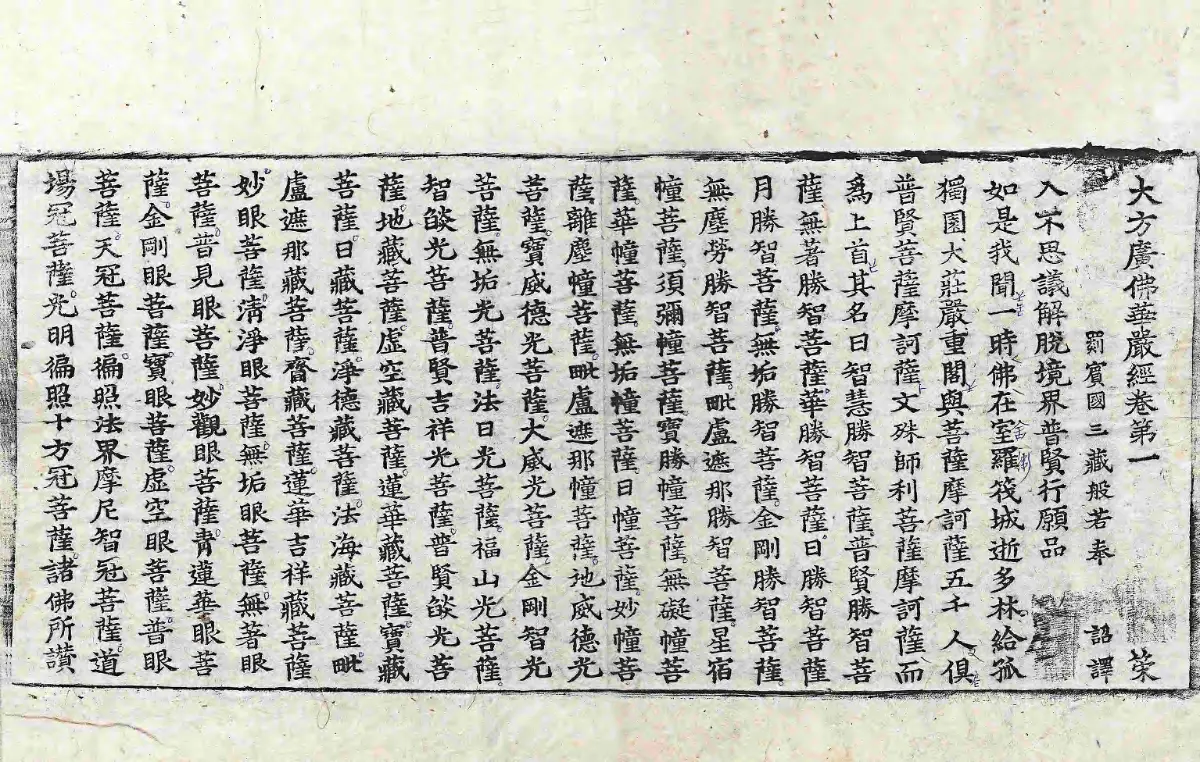 大方廣佛華嚴經卷第一 㭍
罽賓國三藏般若奉 詔譯
入不思議解脫境界普賢行願品
如是我聞一時佛在室羅筏城逝多林給孤
獨園大莊嚴重閣與菩薩摩訶薩五千人俱
普賢菩薩摩訶薩文殊師利菩薩摩訶薩而
爲上首其名曰智慧勝智菩薩普賢勝智菩
薩無著勝智菩薩華勝智菩薩日勝智菩薩
月勝智菩薩無垢勝智菩薩金剛勝智菩薩
無塵勞勝智菩薩毗盧遮那勝智菩薩星宿
幢菩薩須彌幢菩薩寶勝幢菩薩無礙幢菩
薩華幢菩薩無垢幢菩薩日幢菩薩妙幢菩
薩離塵幢菩薩毗盧遮那幢菩薩地威德光
菩薩寶威德光菩薩大威光菩薩金剛智光
菩薩無垢光菩薩法日光菩薩福山光菩薩
智焰光菩薩普賢吉祥光菩薩普賢焰光菩
薩地藏菩薩虛空藏菩薩蓮華藏菩薩寶藏
菩薩日藏菩薩淨德藏菩薩法海藏菩薩毗
盧遮那藏菩薩齎藏菩薩蓮華吉祥藏菩薩
妙眼菩薩清淨眼菩薩無垢眼菩薩無著眼
菩薩普見眼菩薩妙觀眼菩薩青蓮華眼菩
薩金剛眼菩薩寶眼菩薩虛空眼菩薩普眼
菩薩天冠菩薩徧照法界摩尼智冠菩薩道
場冠菩薩光明徧照十方冠菩薩諸佛所讃